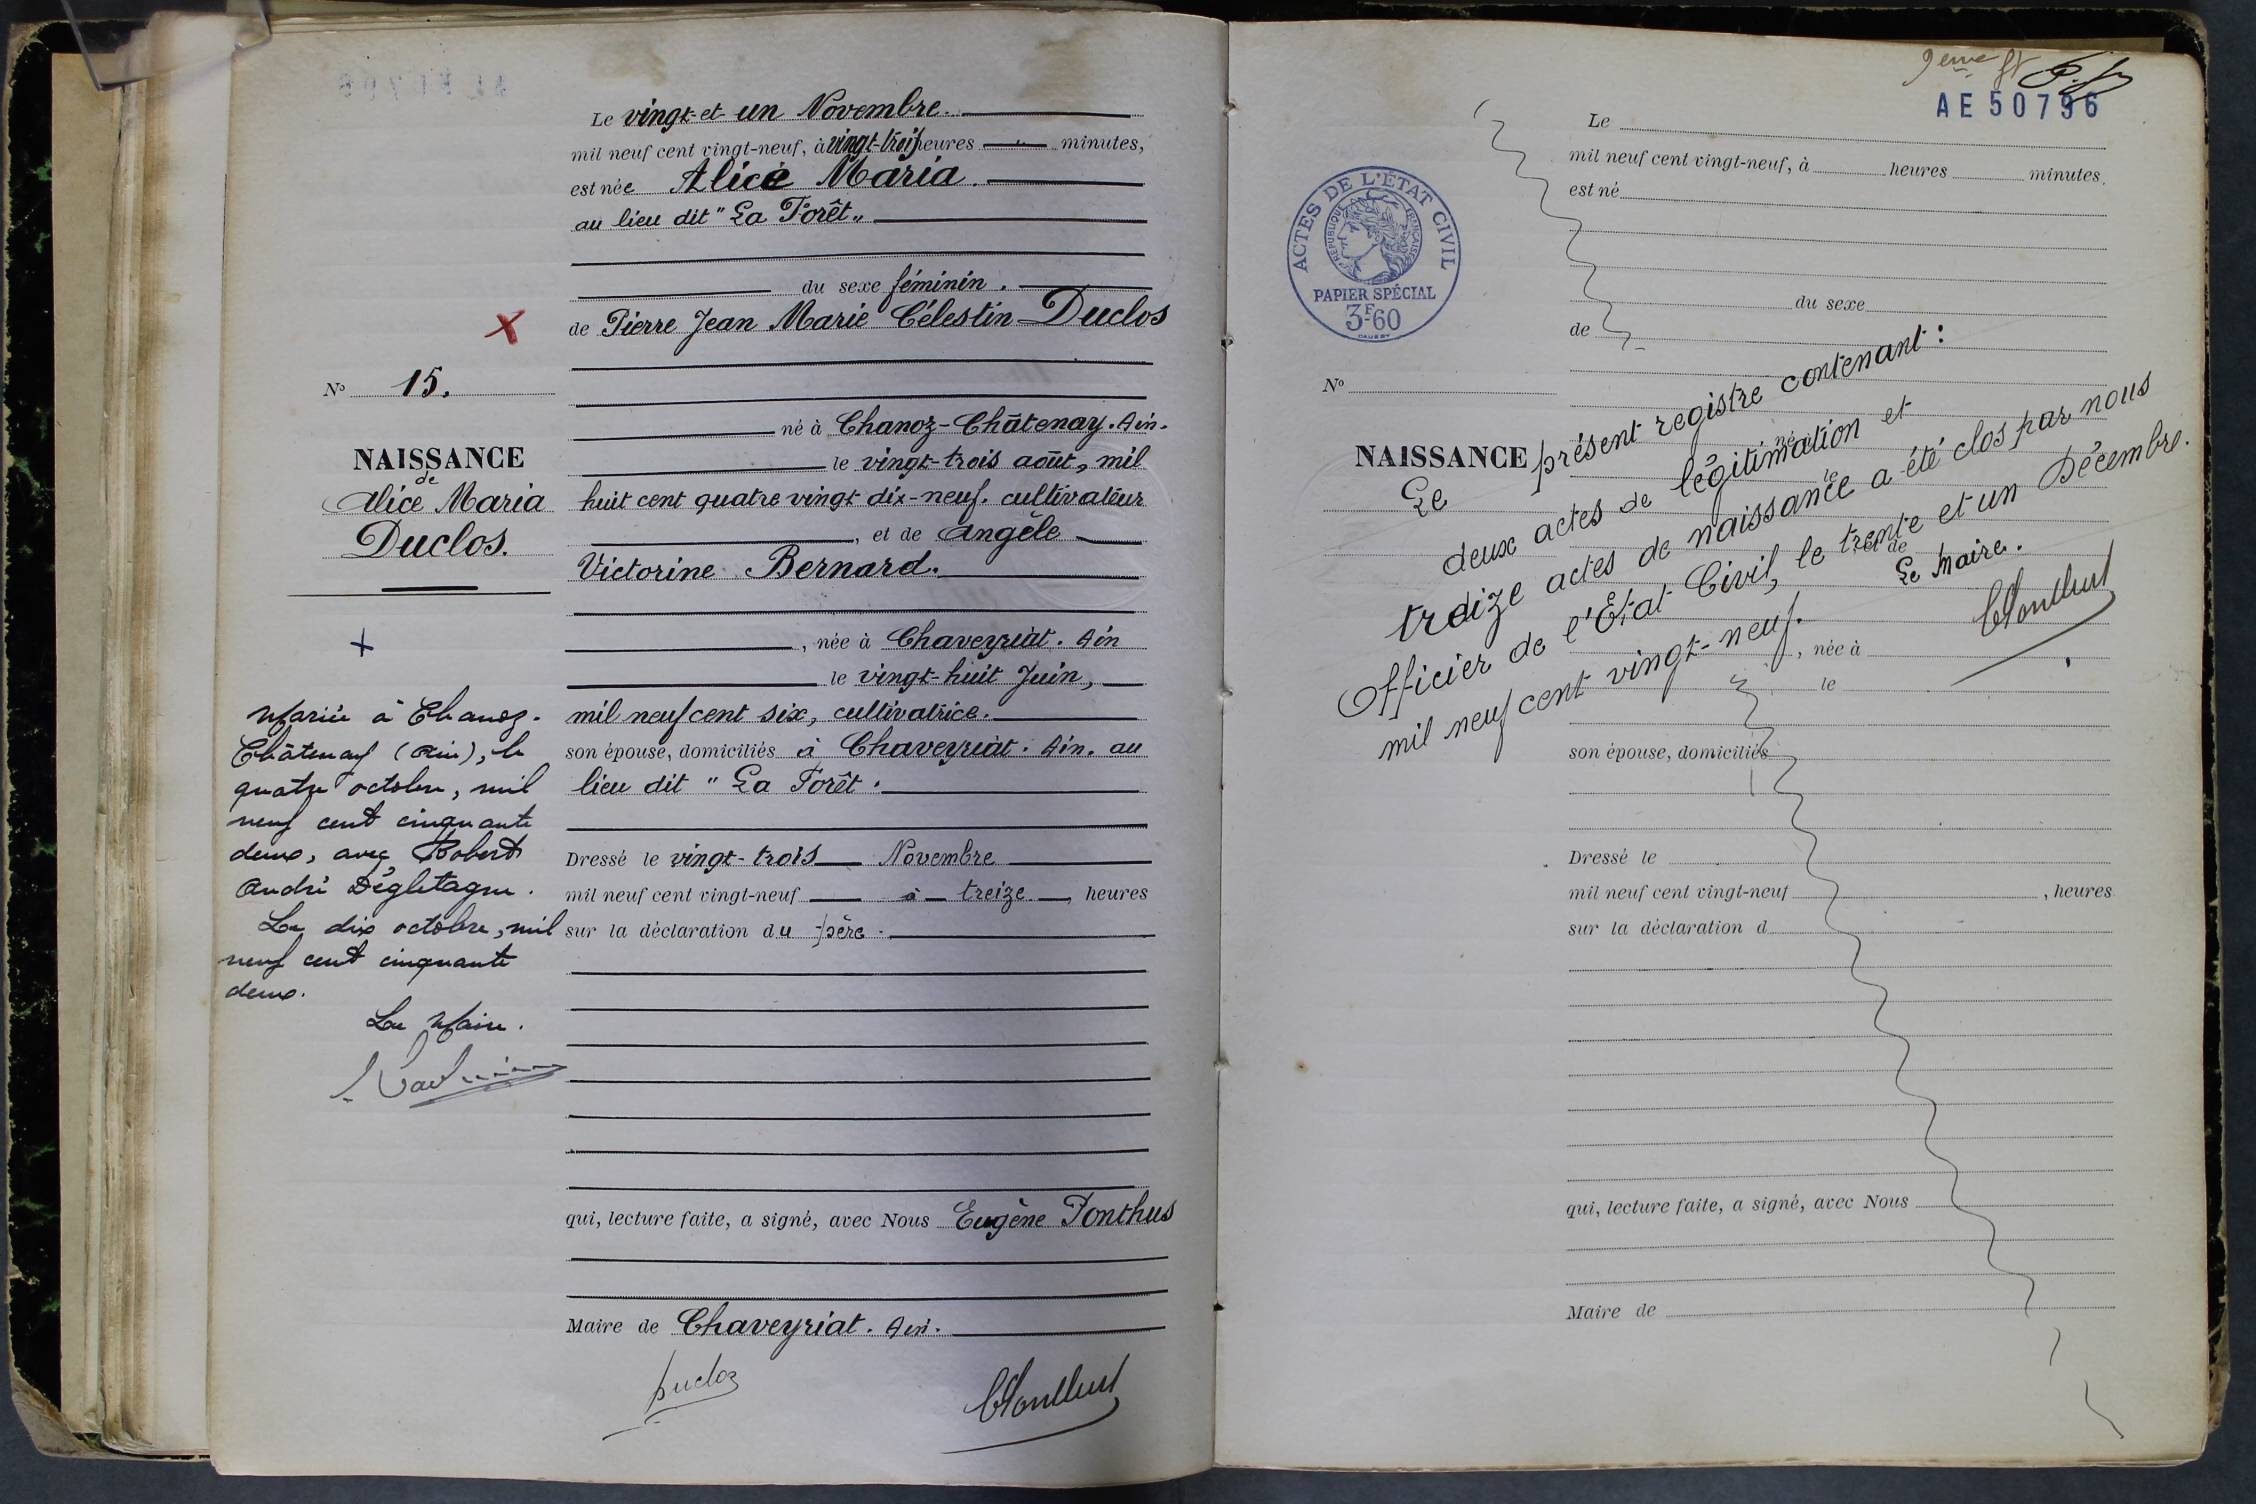 Le vingt-et un Novembre.
mil neuf cent vingt-neuf, à vingt-trois heures " minutes,
est née Alice Maria
au lieu dit "La Forêt"
du sexe féminin.
de Pierre Jean Marie Célestin Duclos
né à Chanoz-Châtenay. Ain.
le vingt-trois août, mil
huit cent quatre vingt dix-neuf. cultivateur
, et de Angèle
Victorine Bernard.
, née à Chaveyriat. Ain
le vingt-huit Juin,
mil neuf cent six, cultivatrice.
son épouse, domiciliés à Chaveyriat. Ain. au
lieu dit "La Forêt.
Dressé le vingt-trois Novembre
mil neuf cent vingt-neuf à treize, heures
sur la déclaration du père.
qui, lecture faite, a signé, avec Nous Eugène Ponthus
Maire de Chaveyriat. Ain.
Duclos
No 15.
NAISSANCE
de
Alice Maria
Duclos.
Mariée à Chanoz-
Châtenay (Ain), le
quatre octobre, mil
neuf cent cinquante
deux, avec Robert
André Dégletagne.
Le dix octobre, mil
neuf cent cinquante
deux.
Le Maire.
9eme ft
AE 50796
ACTES DE L'ÉTAT CIVIL
RÉPUBLIQUE FRANÇAISE
PAPIER SPÉCIAL
3F60
Le
mil neuf cent vingt-neuf, à heures minutes.
est né
du sexe
de
No
NAISSANCE
né à
le
et de
, née à
le
son épouse, domiciliés
Dressé le
mil neuf cent vingt-neuf , heures
sur la déclaration d
qui, lecture faite, a signé, avec Nous
Maire de
Le présent registre contenant:
deux actes de légitimation et
treize actes de naissance a été clos par nous
Officier de l'État Civil, le trente et un Décembre.
mil neuf cent vingt-neuf.
Le Maire.